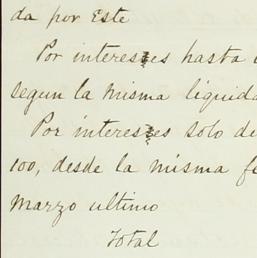 da por Este
Por intereses hasta
segun la misma liquida
Por intereses solo de
100, desde la misma fe
Marzo ultimo
Total